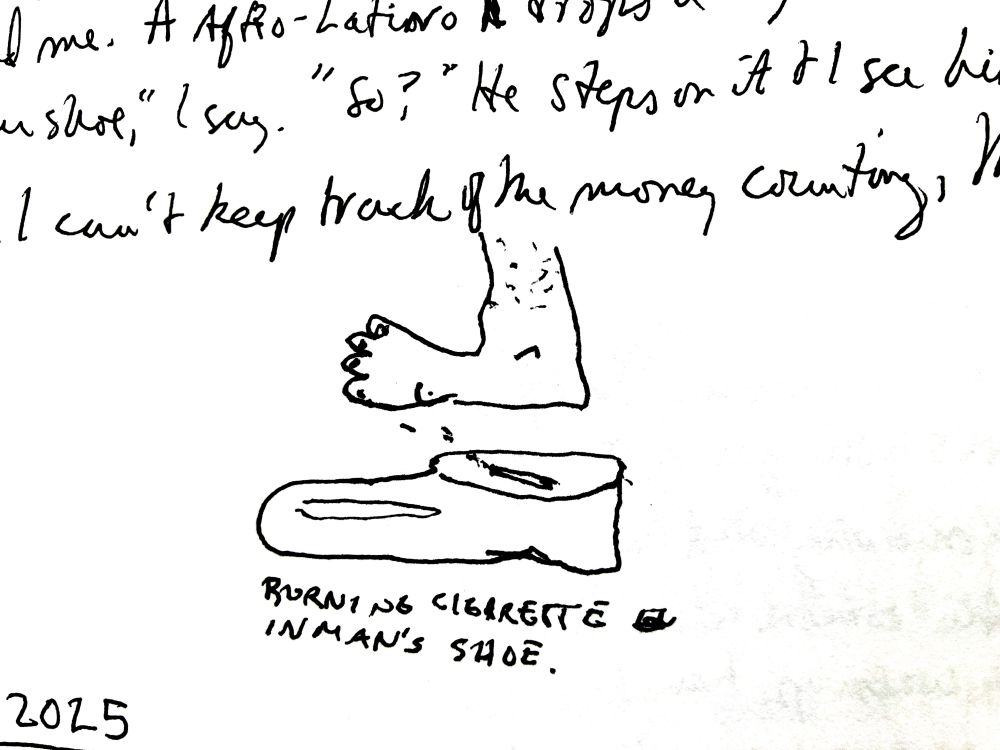 me. A Afro-Latino drops a
shoe," I say. "So?" He steps on it & I see
I can't keep track of the money counting,
BURNING CIGARETTE
IN MAN'S SHOE.
2025